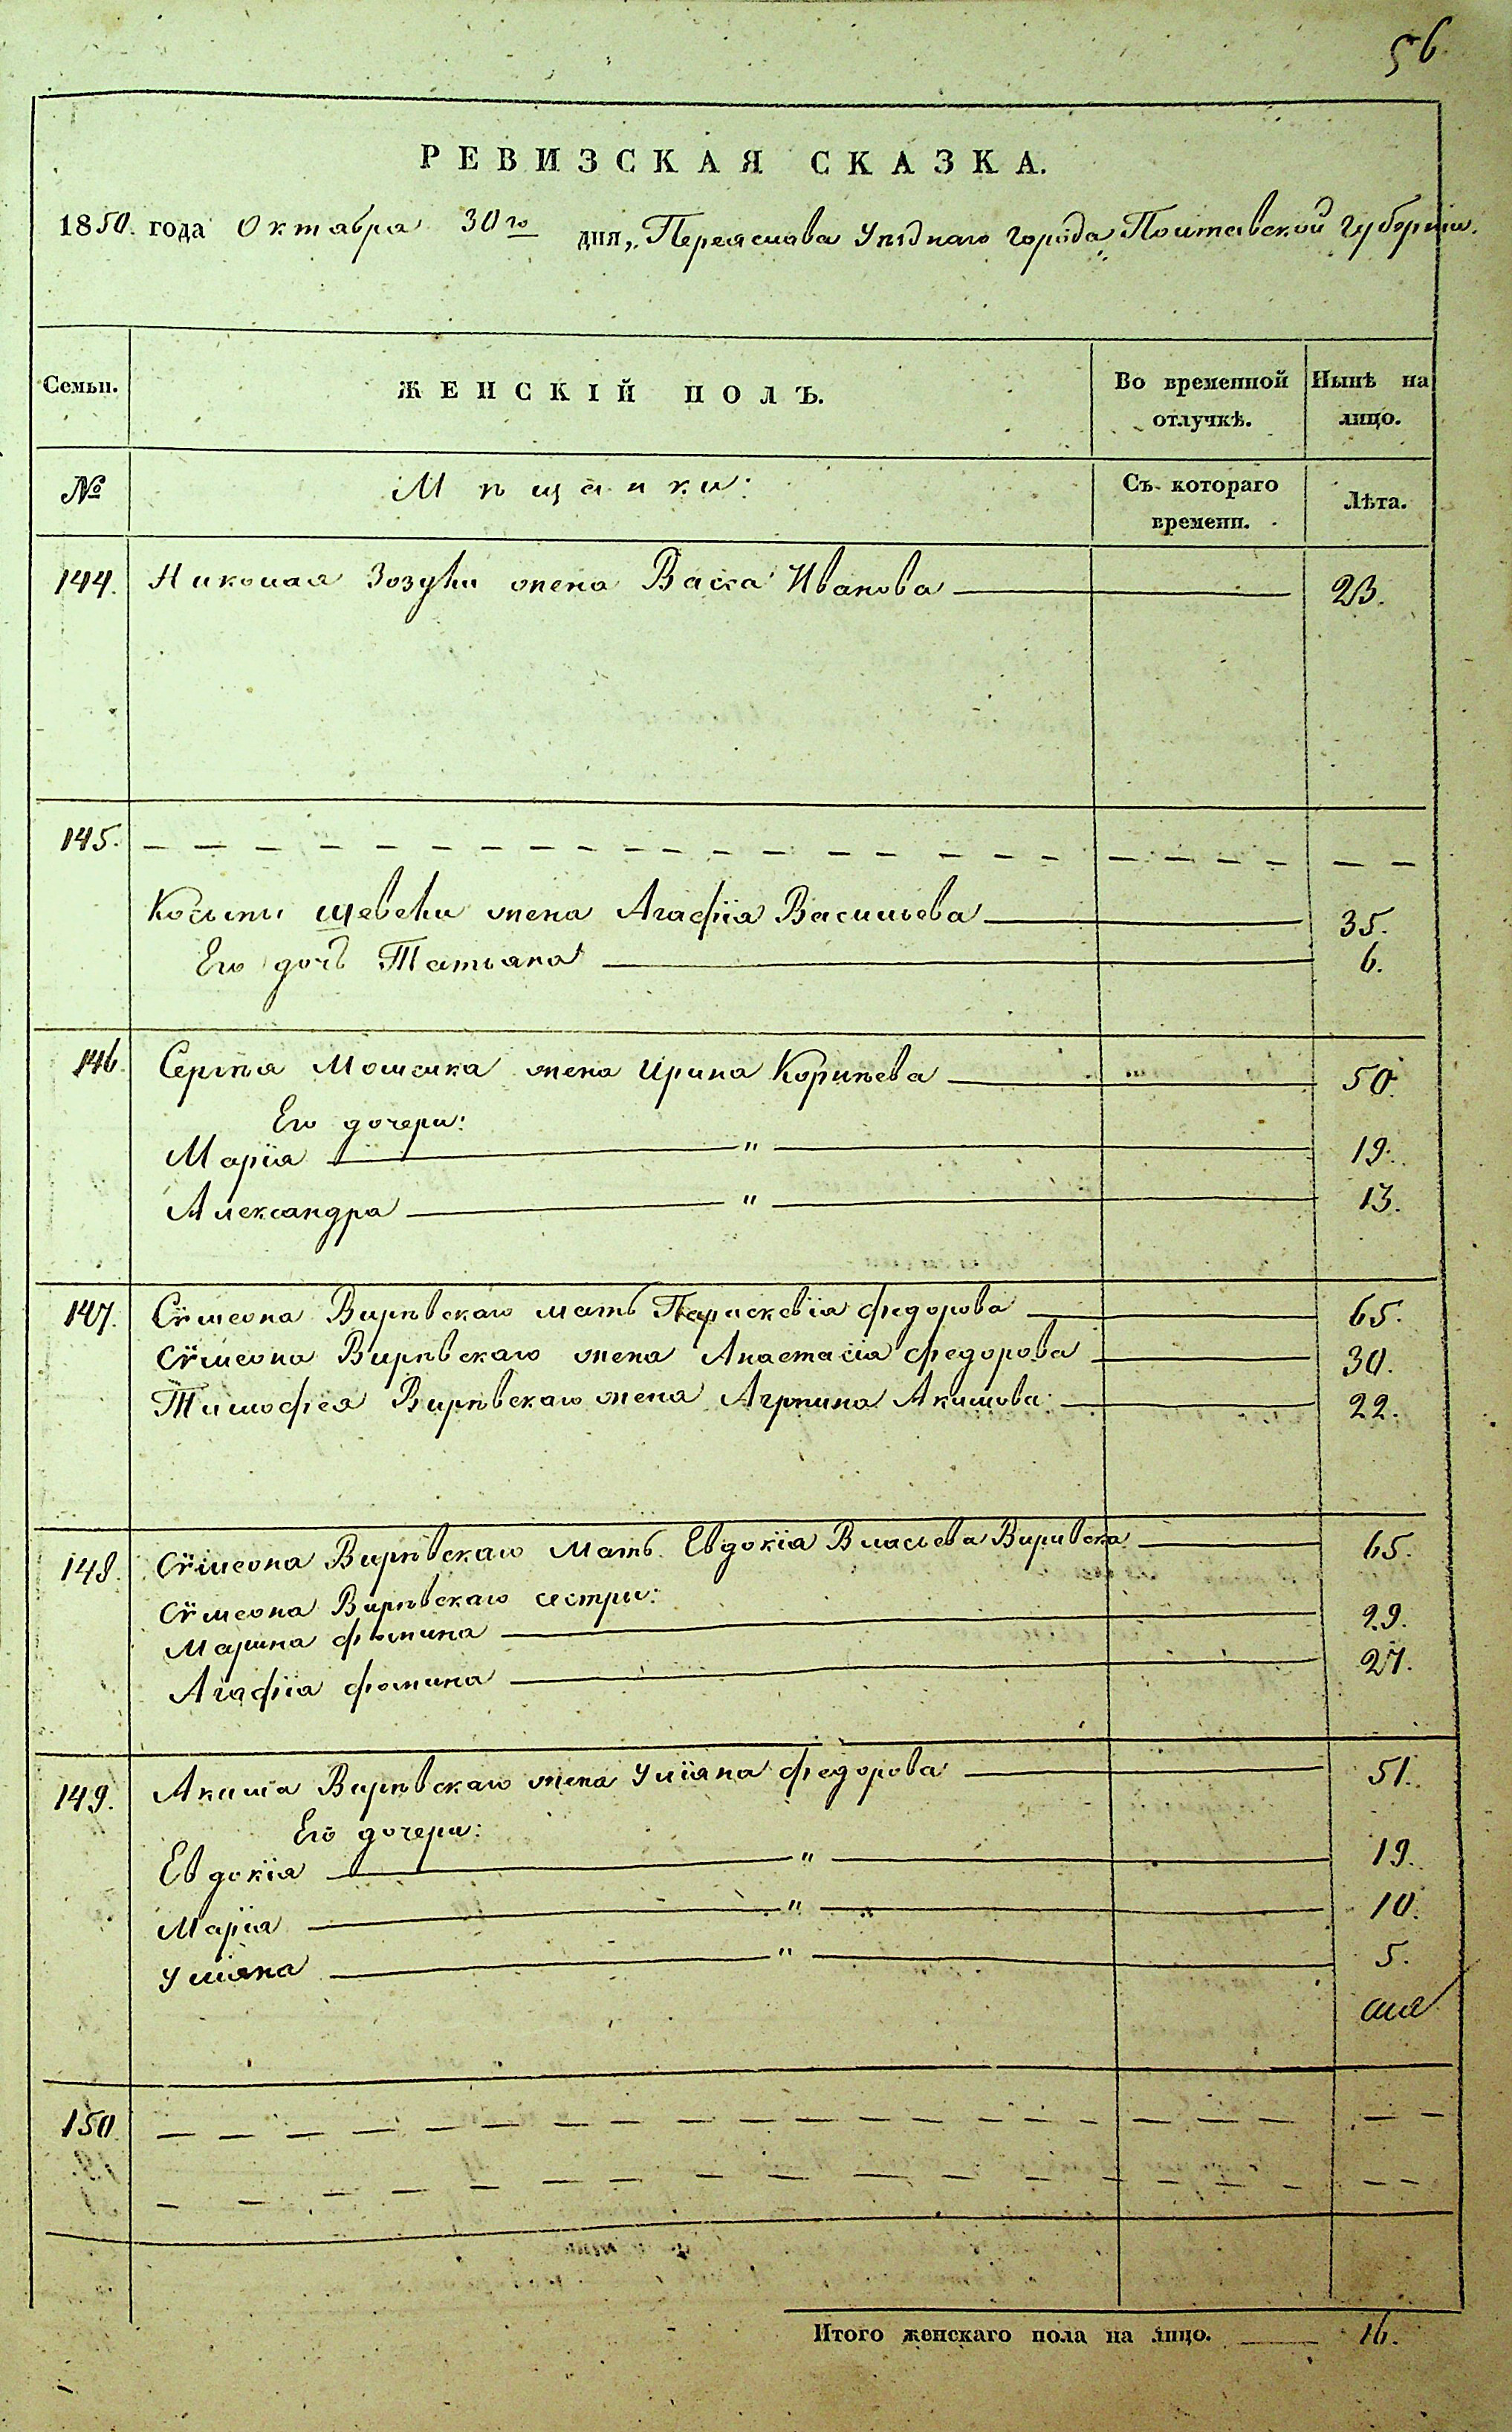 56
РЕВИЗСКАЯ СКАЗКА.
1850. года Октабра 30го дня, Переяслава Уѣзднаго города Полтавской Губерніи.
Семьи. ЖЕНСКІЙ ПОЛЪ. Во временной отлучкѣ. Нынѣ на лицо.
№ Мѣщанки: Съ котораго времени. Лѣта.
144. Николая Зозули жена Васса Иванова 23.
145.
Косьмы жена Агафіа Васильева 35.
Его дочь Татьяна 6.
146. Сергѣя жена Ирина Корнѣева 50.
Его дочери:
Маріа " 19.
Александра " 13.
147. Сѵмеона Вирѣвскаго мать Параскевіа Федорова 65.
Сѵмеона Вирѣвскаго жена Анастасіа Федорова 30.
Тимофея Вирѣвскаго жена Агрпина Акимова 22.
148. Сѵмеона Вирѣвскаго мать Евдокіа Власьева Виривска 65.
Сѵмеона Вирѣвскаго сестри:
Марина Фомина 29.
Агафіа Фомина 27.
149. Акима Вирѣвскаго жена Уліана Федорова 51.
Его дочери:
Евдокіа " 19.
Маріа " 10.
Уліана " 5.
150
Итого женскаго пола на лицо. 16.